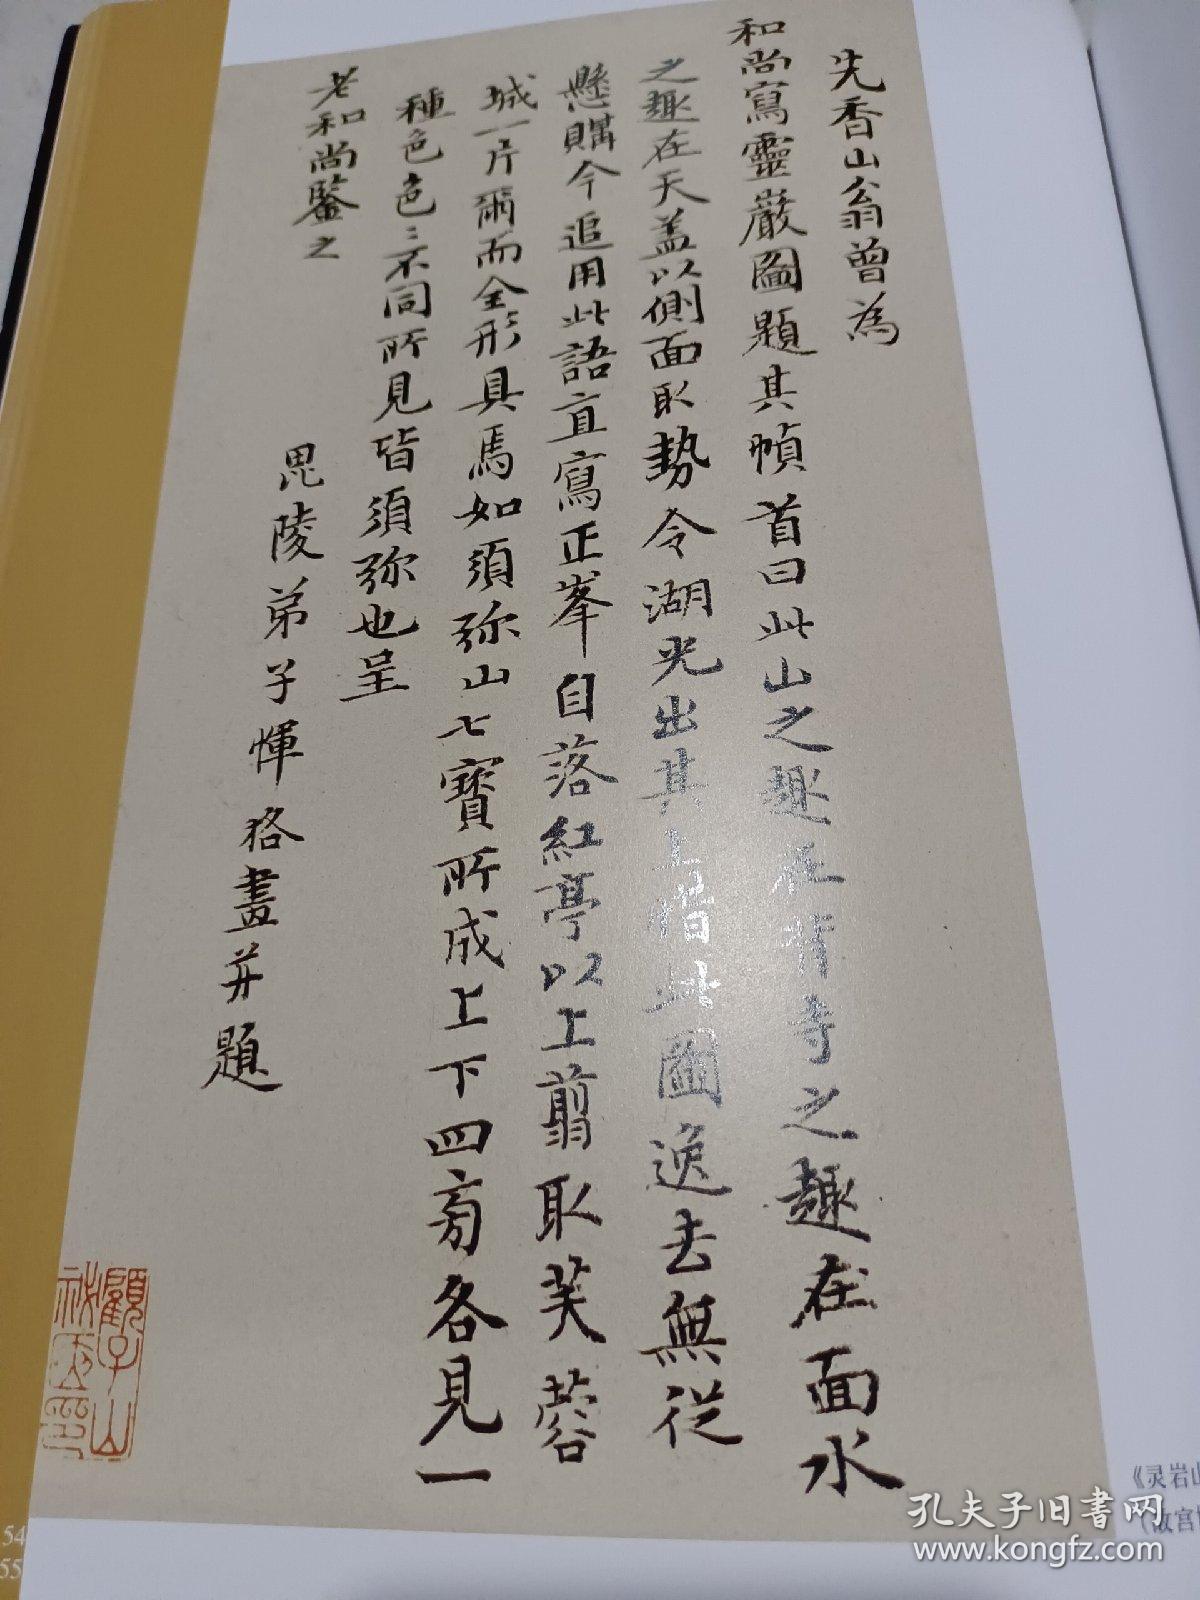 先香山翁曽為
和尚寫靈巖圖題其幀首曰此山之趣在背寺之趣在面水
之趣在天盖以側面取勢令湖光出其上惜此圖逸去無従
懸購今追用此語直寫正峯自落紅亭以上翦取芙蓉
城一片爾而全形具焉如須弥山七寶所成上下四旁各見一
種色色:不同所見皆須弥也呈
老和尚鑒之
毘陵弟子惲格畫并題
顧子山
祕匧印
54
55
《灵岩山
(故宫
孔夫子旧书网
www.kongfz.com